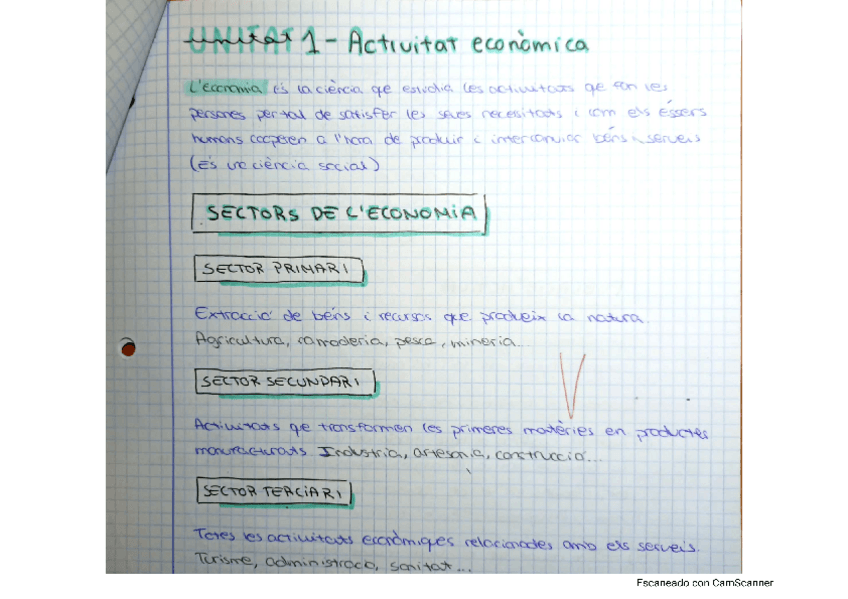 UNITAT 1 - Activitat econòmica
L'economia és la ciència que estudia les activitats que fan les
persones per tal de satisfer les seves necessitats i com els éssers
humans cooperen a l'hora de produir i intercanviar béns i serveis
(És una ciència social)
SECTORS DE L'ECONOMIA
SECTOR PRIMARI
Extracció de béns i recursos que produeix la natura.
Agricultura, ramaderia, pesca, mineria...
SECTOR SECUNDARI
Activitats que transformen les primeres matèries en productes
manufacturats. Indústria, artesania, construcció...
SECTOR TERCIARI
Totes les activitats econòmiques relacionades amb els serveis.
Turisme, administració, sanitat...
Escaneado con CamScanner